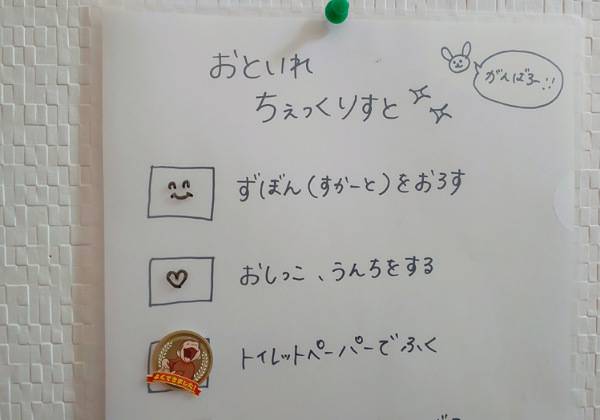 おといれ
ちぇっくりすと
がんばろー!!
ずぼん(すかーと)をおろす
おしっこ、うんちをする
トイレットペーパーでふく
よくできました!